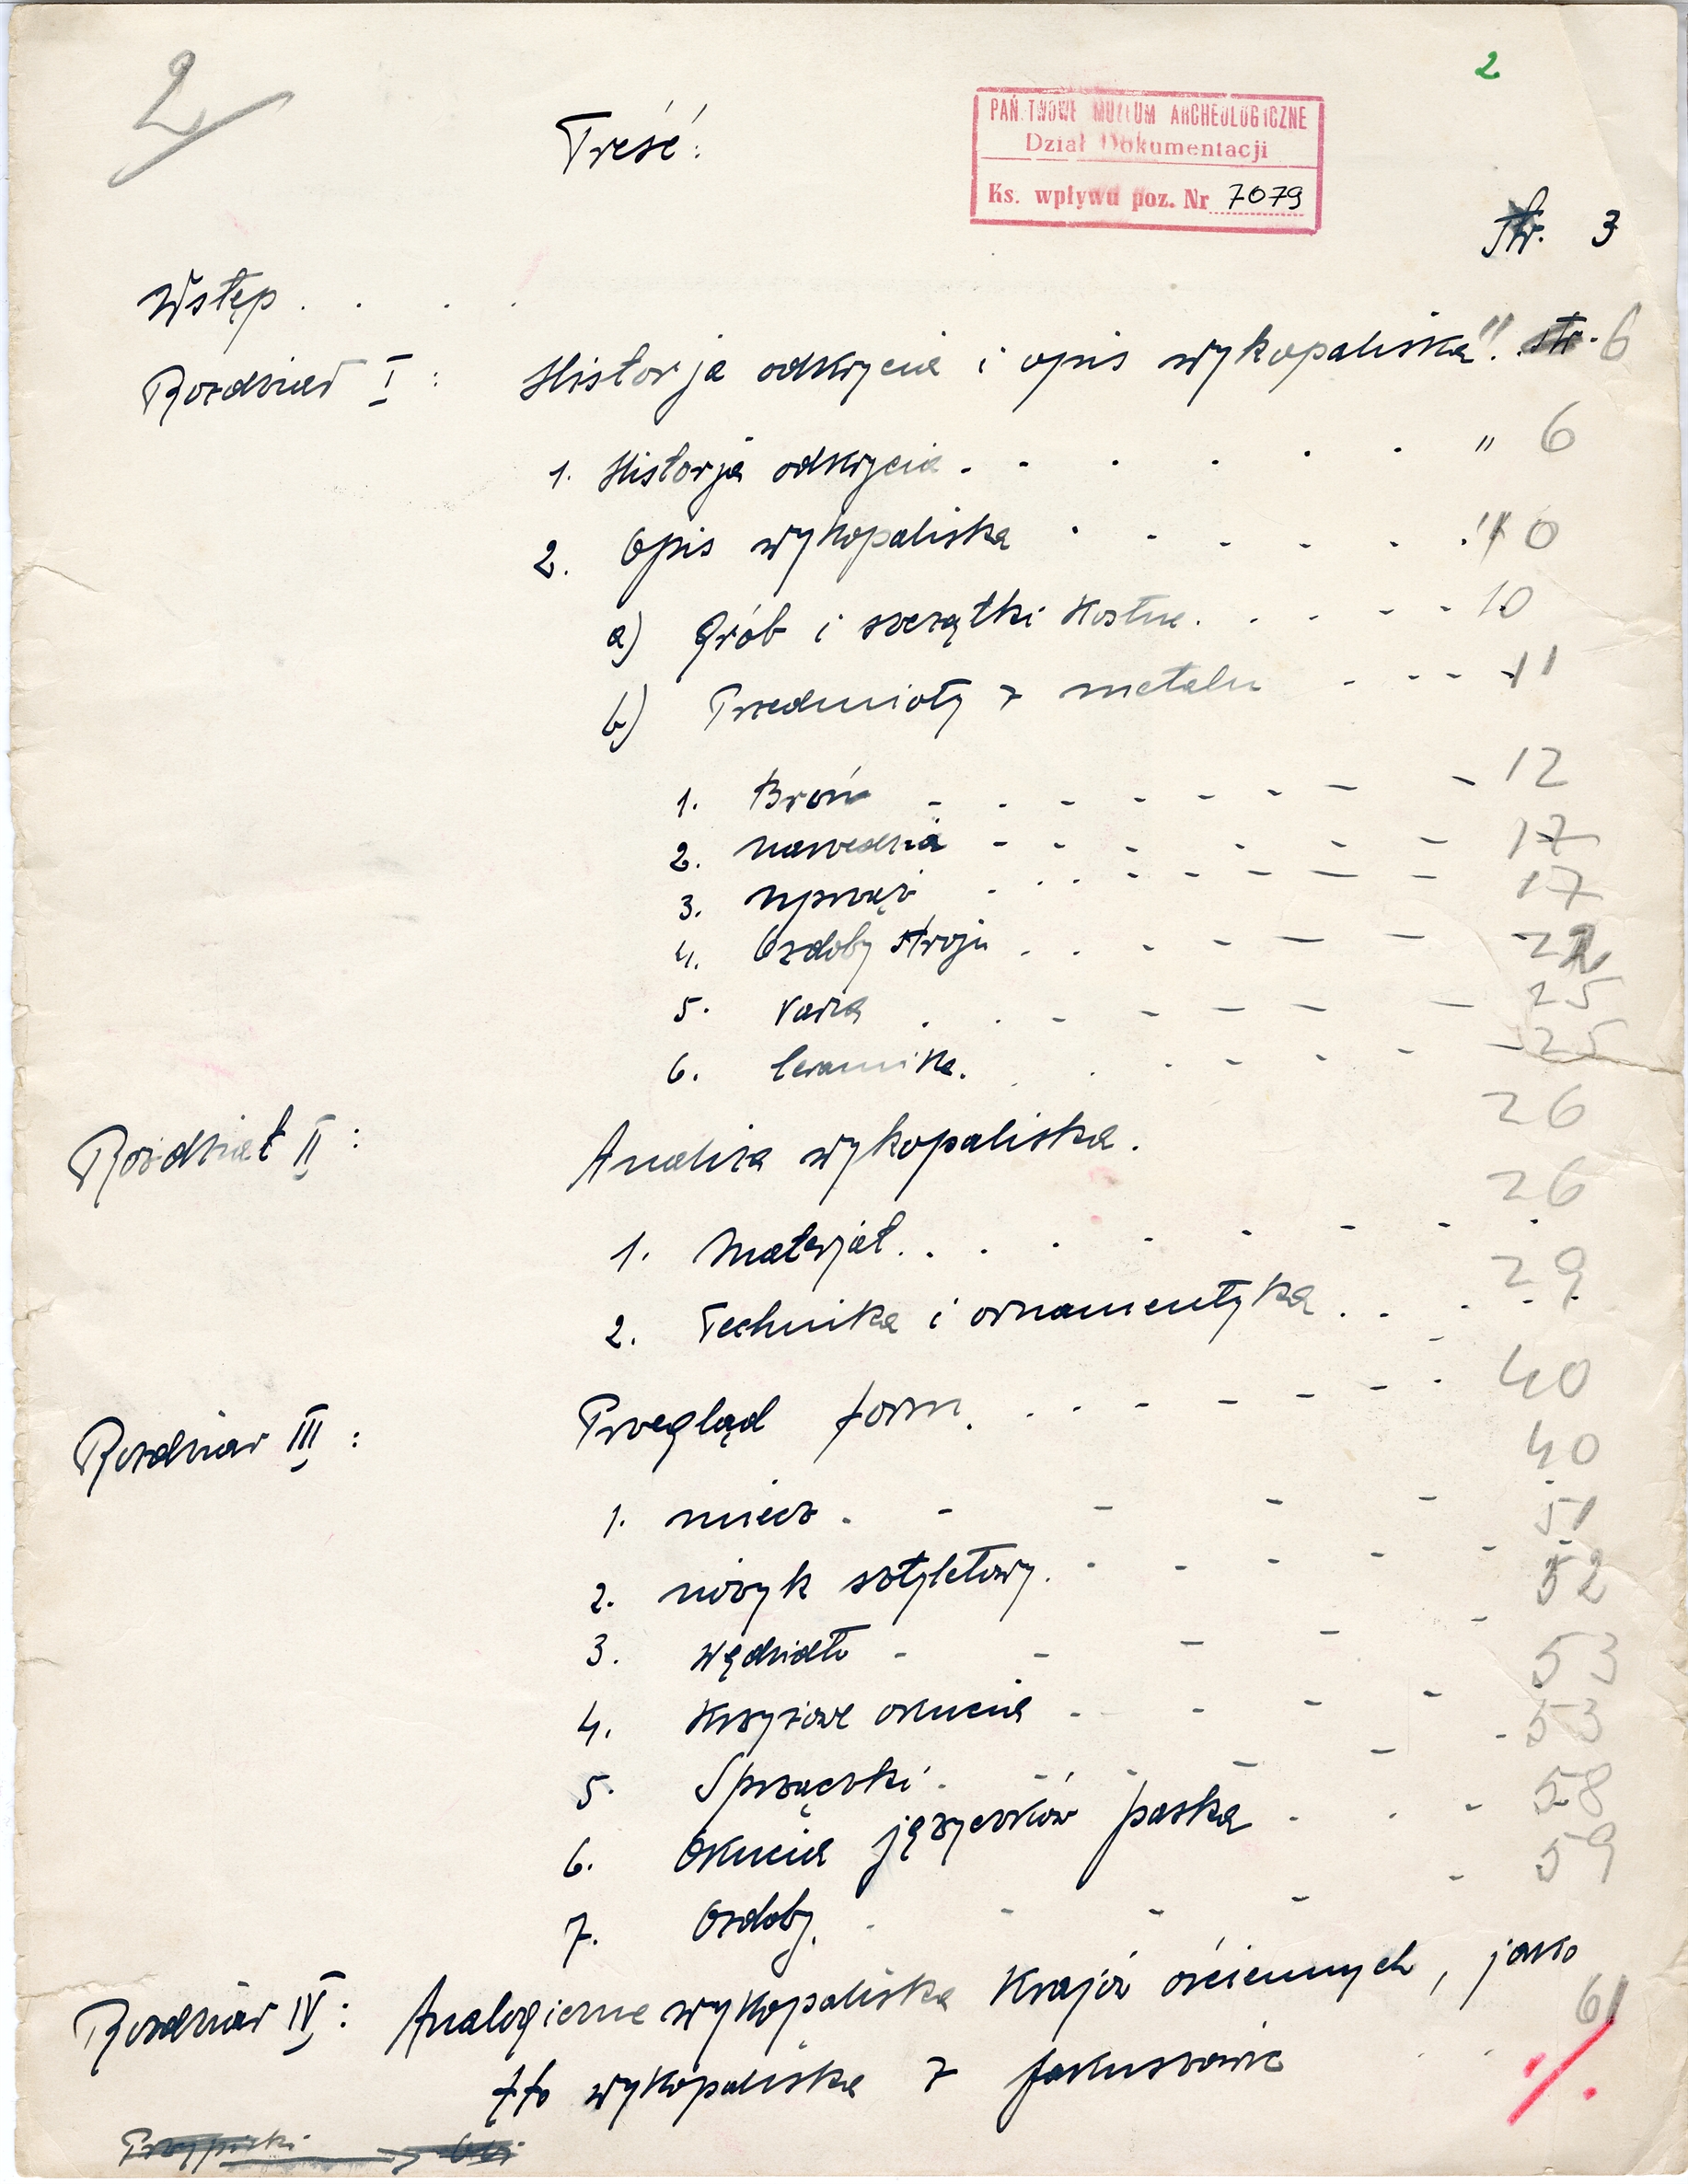 2
2
Treść:
PAŃSTWOWE MUZEUM ARCHEOLOGICZNE
Dział Dokumentacji
Ks. wpływu poz. Nr 7079
Str. 3
Wstęp . . . .
Rozdział I : Historja odkrycia i opis wykopaliska " . str. 6
1. Historja odkrycia . . . . . . " 6
2. Opis wykopaliska . . . . . . " 10
a) Grób i szczątki kostne . . . - - 10
b) Przedmioty z metalu - - - - 11
1. Broń - . - - - - - - 12
2. narzędzia - - - - - - 17
3. uprząż . . . - - - - - 17
4. Ozdoby stroju . . - - - - - 22
5. Varia . . - - - - - 25
6. Ceramika . . . - - - - 25
Rozdział II : Analiza wykopaliska . 26
1. Materjał . . . . - - - - . 26
2. Technika i ornamentyka . . . - - 29
Rozdział III : Przegląd form . . - - - - - . 40
1. miecz . - - - - - 40
2. nożyk sztyletowy . - - - - - - 51
3. Wędzidło - - - - - 52
4. Krzyżowe okucia - - - - 53
5. Sprzączki . - - - - - 53
6. Okucia języczków paska . . - 58
7. Ozdoby . . - - - - 59
Rozdział IV : Analogiczne wykopaliska krajów ościennych, jako
tło wykopaliska z Jakuszowic . . 61
Przypiski